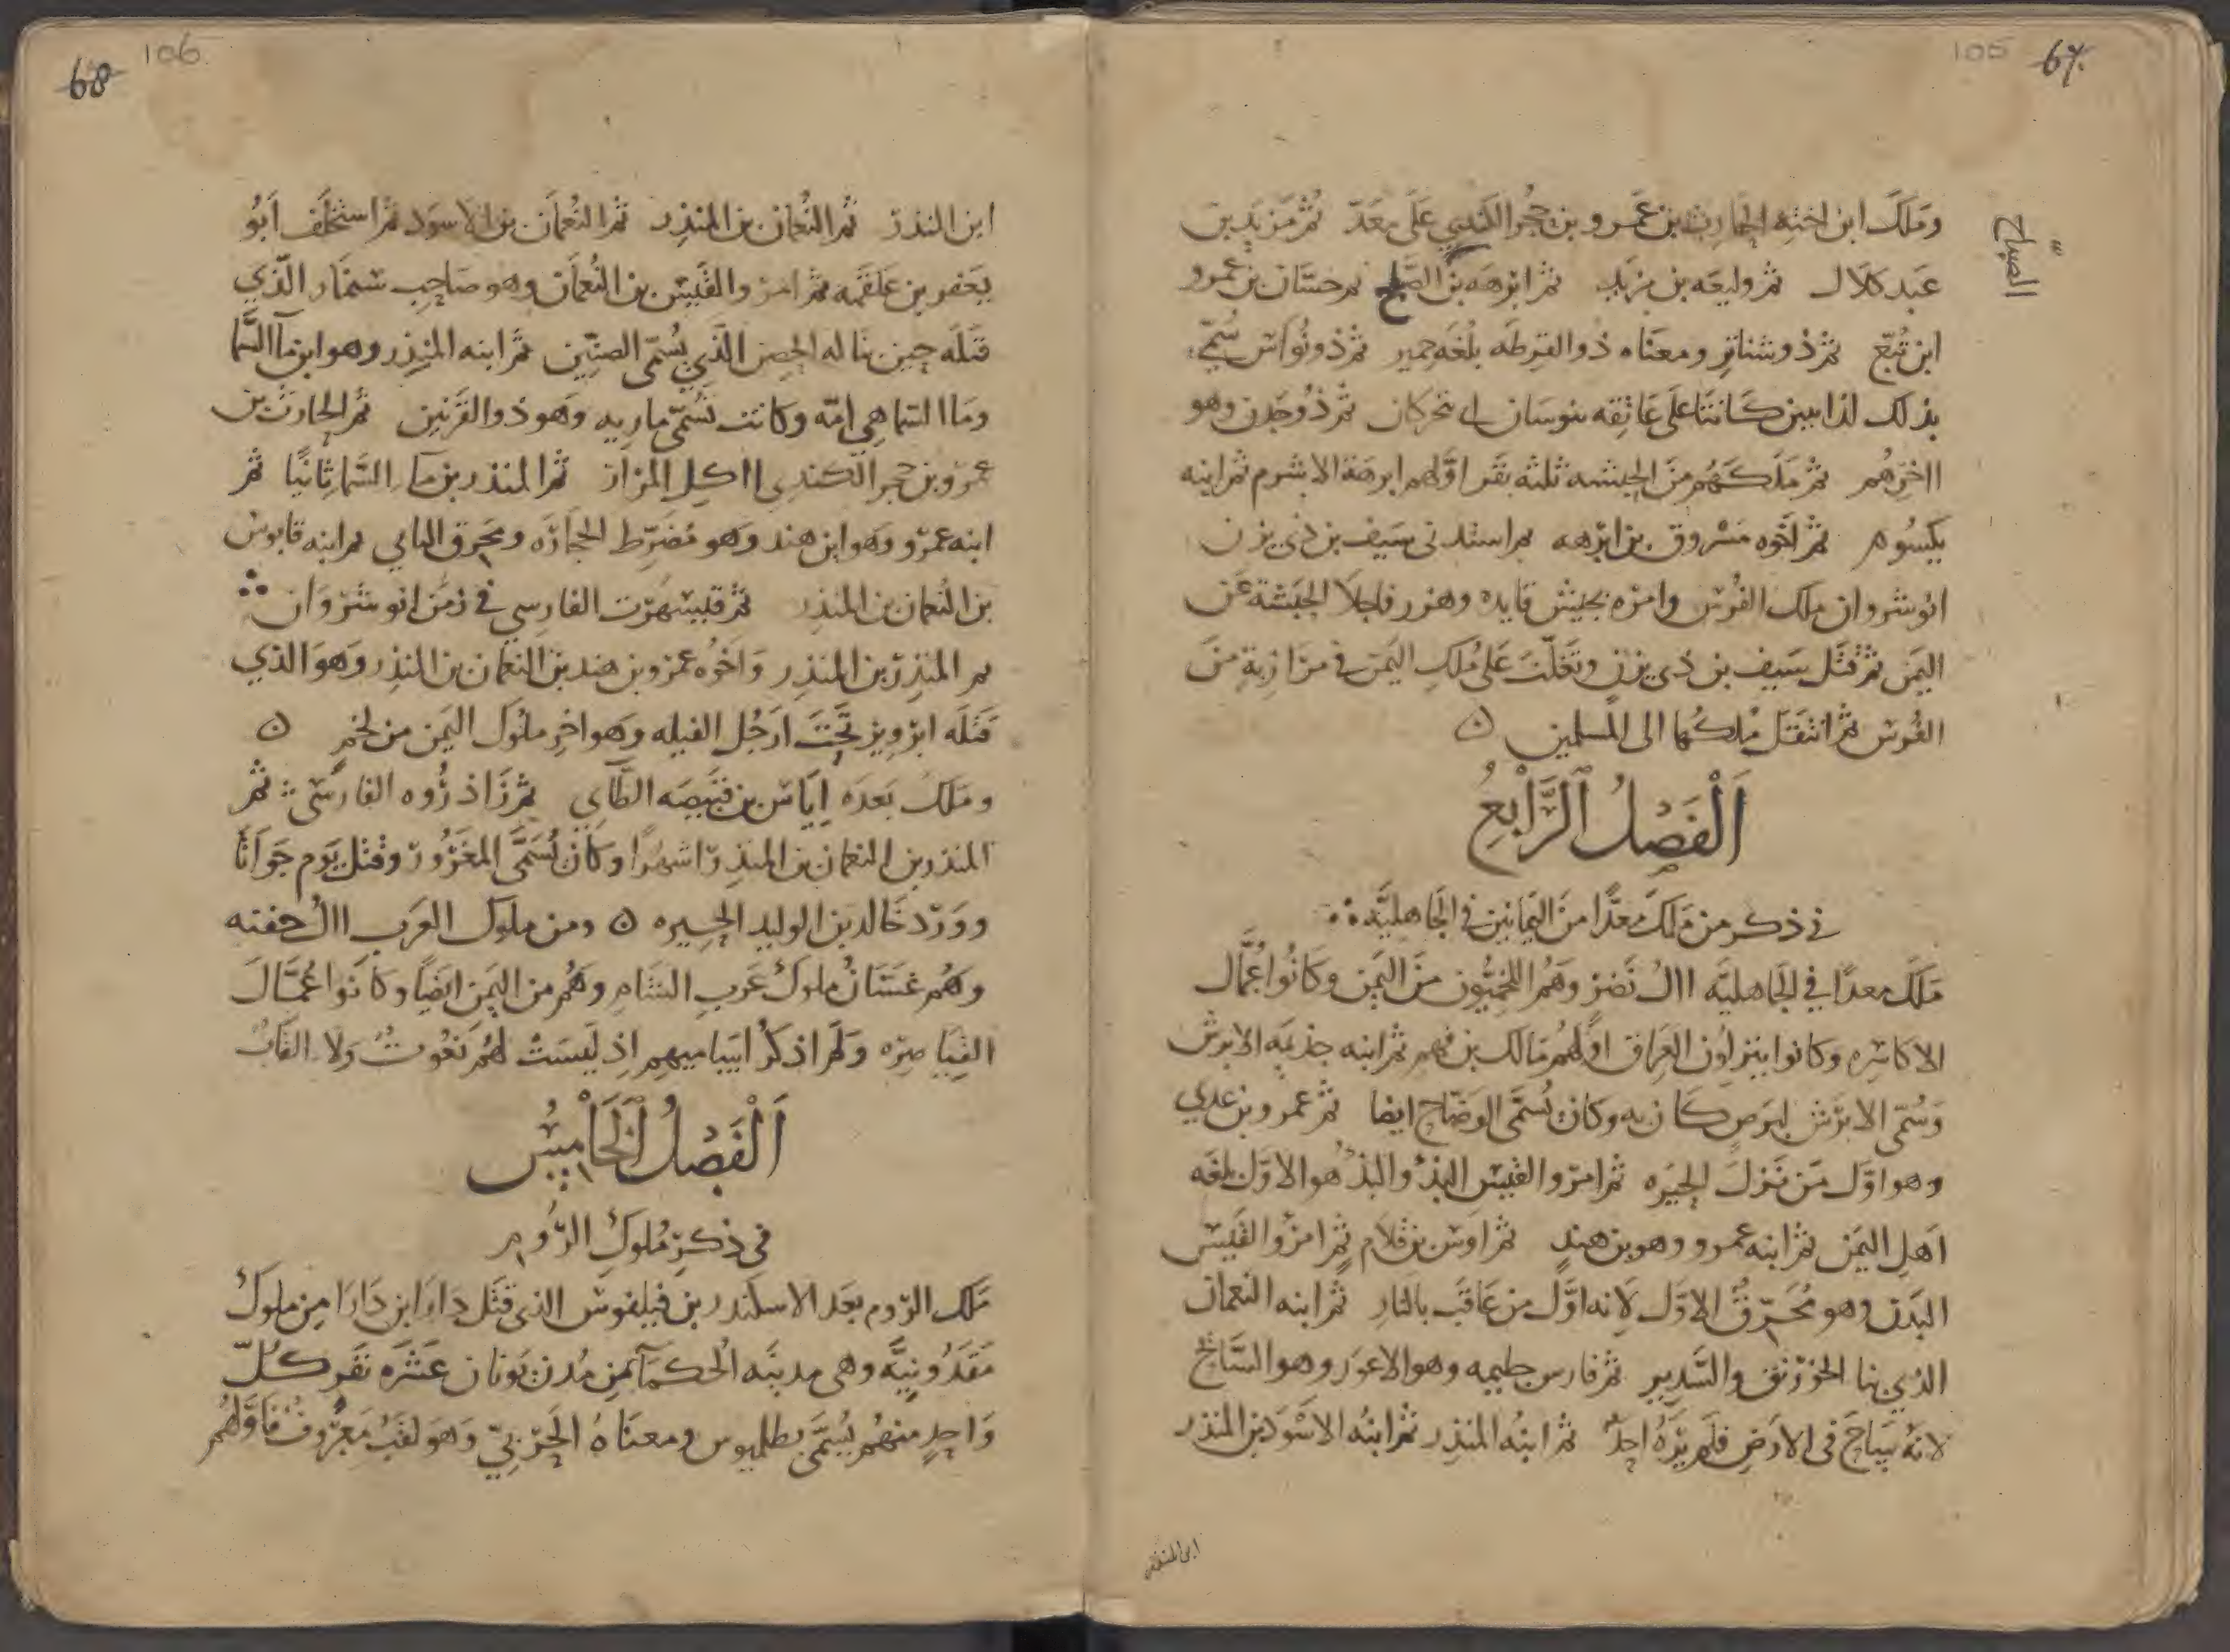 67
105
وملك ابن اخته الحارث بن عمرو بن حجر الكندي على معد ثم مزيد بن
الصباح
عبد كلال ثم وليعه بن مزيد ثم ابرهه بن الصباح ثم حسّان بن عمرو
ابن تُبّع ثم ذو شناتر ومعناه ذو القرطه بلغه حمير ثم ذو نُواس سُمّي
بذلك لذابيين كانتا على عاتقه تنوسان اي تحركان ثم ذو جدن وهو
ااخرهم ثم ملكهم من الحبشه ثلثه نفر اوّلهم ابرهة الاشرم ثم ابنه
يكسوم ثم اخوه مسروق بن ابرهه ثم استدنى سيف بن ذي يزن
انوشروان ملك الفُرس وامره بجيش قايده وهرز فاجلا الحبشة عن
اليمن ثم قُتل سيف بن ذي يزن وتخلّت على مُلك اليمن في مرازبةٍ من
الفُرس ثم انتقل مُلكها الى المسلمين ۞
اَلْفَصْلُ اَلرَّابِعُ
في ذكر من ملك معدًّا من اليمانين في الجاهليّه
ملك معدًا في الجاهليّه اال نَصْر وهم اللخميّون من اليمن وكانُوا عُمّال
الاكاسره وكانوا ينزلون العراق اوّلهم مالك بن فهم ثم ابنه جذيمه الابرش
وسُمّى الابرش لبرص كان به وكان يُسمّى الوضّاح ايضا ثم عمرو بن عدي
وهو اوّل من نزل الحيره ثم امرو القيس البذؤ والبذؤ هو الاوّل بلغه
اهل اليمن ثم ابنه عمرو وهو بن هندٍ ثم اوس بن قلام ثم امرؤ القيس
البدن وهو مُحرّقٌ الاوّل لانه اوّل من عاقب بالنار ثم ابنه النعمان
الذي بنا الخورنق والسّدير ثم فارس حليمه وهو الاعور وهو السّايح
لانه سَاحَ في الارض فلم يَرَهُ احدٌ ثم ابنُه المنذر ثم ابنُه الاسْود بن المنذر
ابن المنذر
68
106
ابن المنذر ثم النُعمان بن المنذر ثم النُعمان بن الاسود ثم استخلف ابُو
يعفر بن علقمه ثم امرؤ القيس بن النُعمان وهو صَاحِب سنمّار الّذي
قتله حين بنا له الحِصن الّذي يُسمّى الصنّين ثم ابنه المنذر وهو ابن مآ السّما
وماا السّما هي امّه وكانت تُسمّى ماريه وهو ذو القرنين ثم الحارث بن
عمرو بن حجر الكندي ااكل المرار ثم المنذر بن مآ السّما ثانيًا ثم
ابنه عمرو وهو ابن هند وهو مُضرّط الحجارَه ومحرق الثاني ثم ابنه قابوس
بن النُعمان بن المنذر ثم قبيسهرت الفارسي في زمن انوشروان
ثم المنذر بن المنذر واخُوه عمرو بن هند بن النعمان بن المنذر وهو الذي
قتله ابرويز تحت ارجُل الفيله وهو اخر ملوك اليمن من لخم ۞
وملك بعده اياس بن قبيصه الطّاي ثم زاذرُوه الفارسّى ثم
المنذر بن النعمان بن المنذر اشهرًا وكان يُسمّى المغرُور وقتل يوم جواثا
ووَرَد خالد بن الوليد الحيره ۞ ومن ملوك العرب اال جفنه
وهُم غسّان ملوك عرب الشام وهُم من اليمن ايضًا وكانوا عُمّال
القياصره ولم اذكُر اساميهم اذ ليست لهُم نعُوتٌ ولا القابٌ
اَلْفَصْلُ اَلْخَامِسُ
في ذكر مُلوك الرّوم
ملك الرّوم بعد الاسكندر بن فيلفوس الذى قتَل دارا بن دارا من ملوك
مقدونيّه وهى مدينه الحكمآ من مُدن يونان عشره نفر كلّ
واحدٍ منهُم يُسمّى بطلميوس ومعناهُ الحربيّ وهو لقبٌ معروفٌ فاوّلهُم